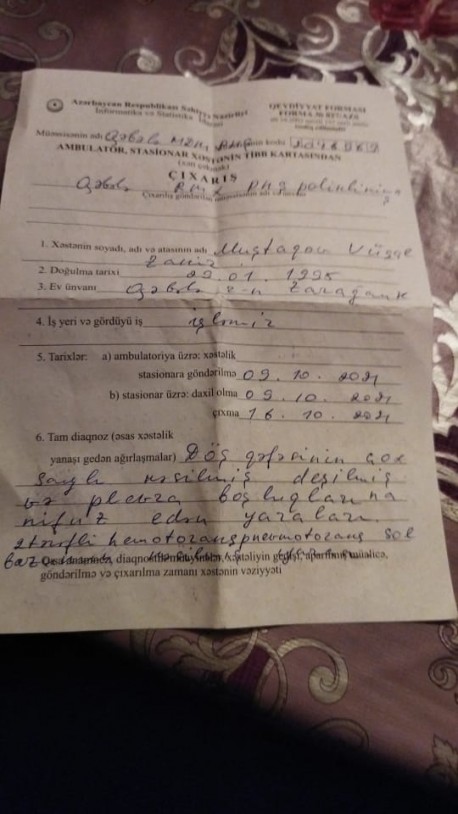 Azərbaycan Respublikası Səhiyyə Nazirliyi
İnformatika və Statistika
QEYDİYYAT FORMASI
Müəssisənin adı Qəbələ
AMBULATOR, STASİONAR XƏSTƏNİN TİBB KARTASINDAN
ÇIXARIŞ
Qəbələ poliklinika
1. Xəstənin soyadı, adı və atasının adı Muştaqov Vüqar
Zakir
2. Doğulma tarixi 29.01.1995
3. Ev ünvanı Qəbələ r-n
4. İş yeri və gördüyü iş işləmir
5. Tarixlər: a) ambulatoriya üzrə: xəstəlik
stasionara göndərilmə 09.10.2021
b) stasionar üzrə: daxil olma 09.10.2021
çıxma 16.10.2021
6. Tam diaqnoz (əsas xəstəlik
yanaşı gedən ağırlaşmalar) Döş qəfəsinin çox
saylı kəsilmiş deşilmiş
və plevra boşluqlarına
nüfuz edən yaraları.
hemotoraks pnevmotoraks sol
xəstəliyin gedişi, aparılmış müalicə,
göndərilmə və çıxarılma zamanı xəstənin vəziyyəti